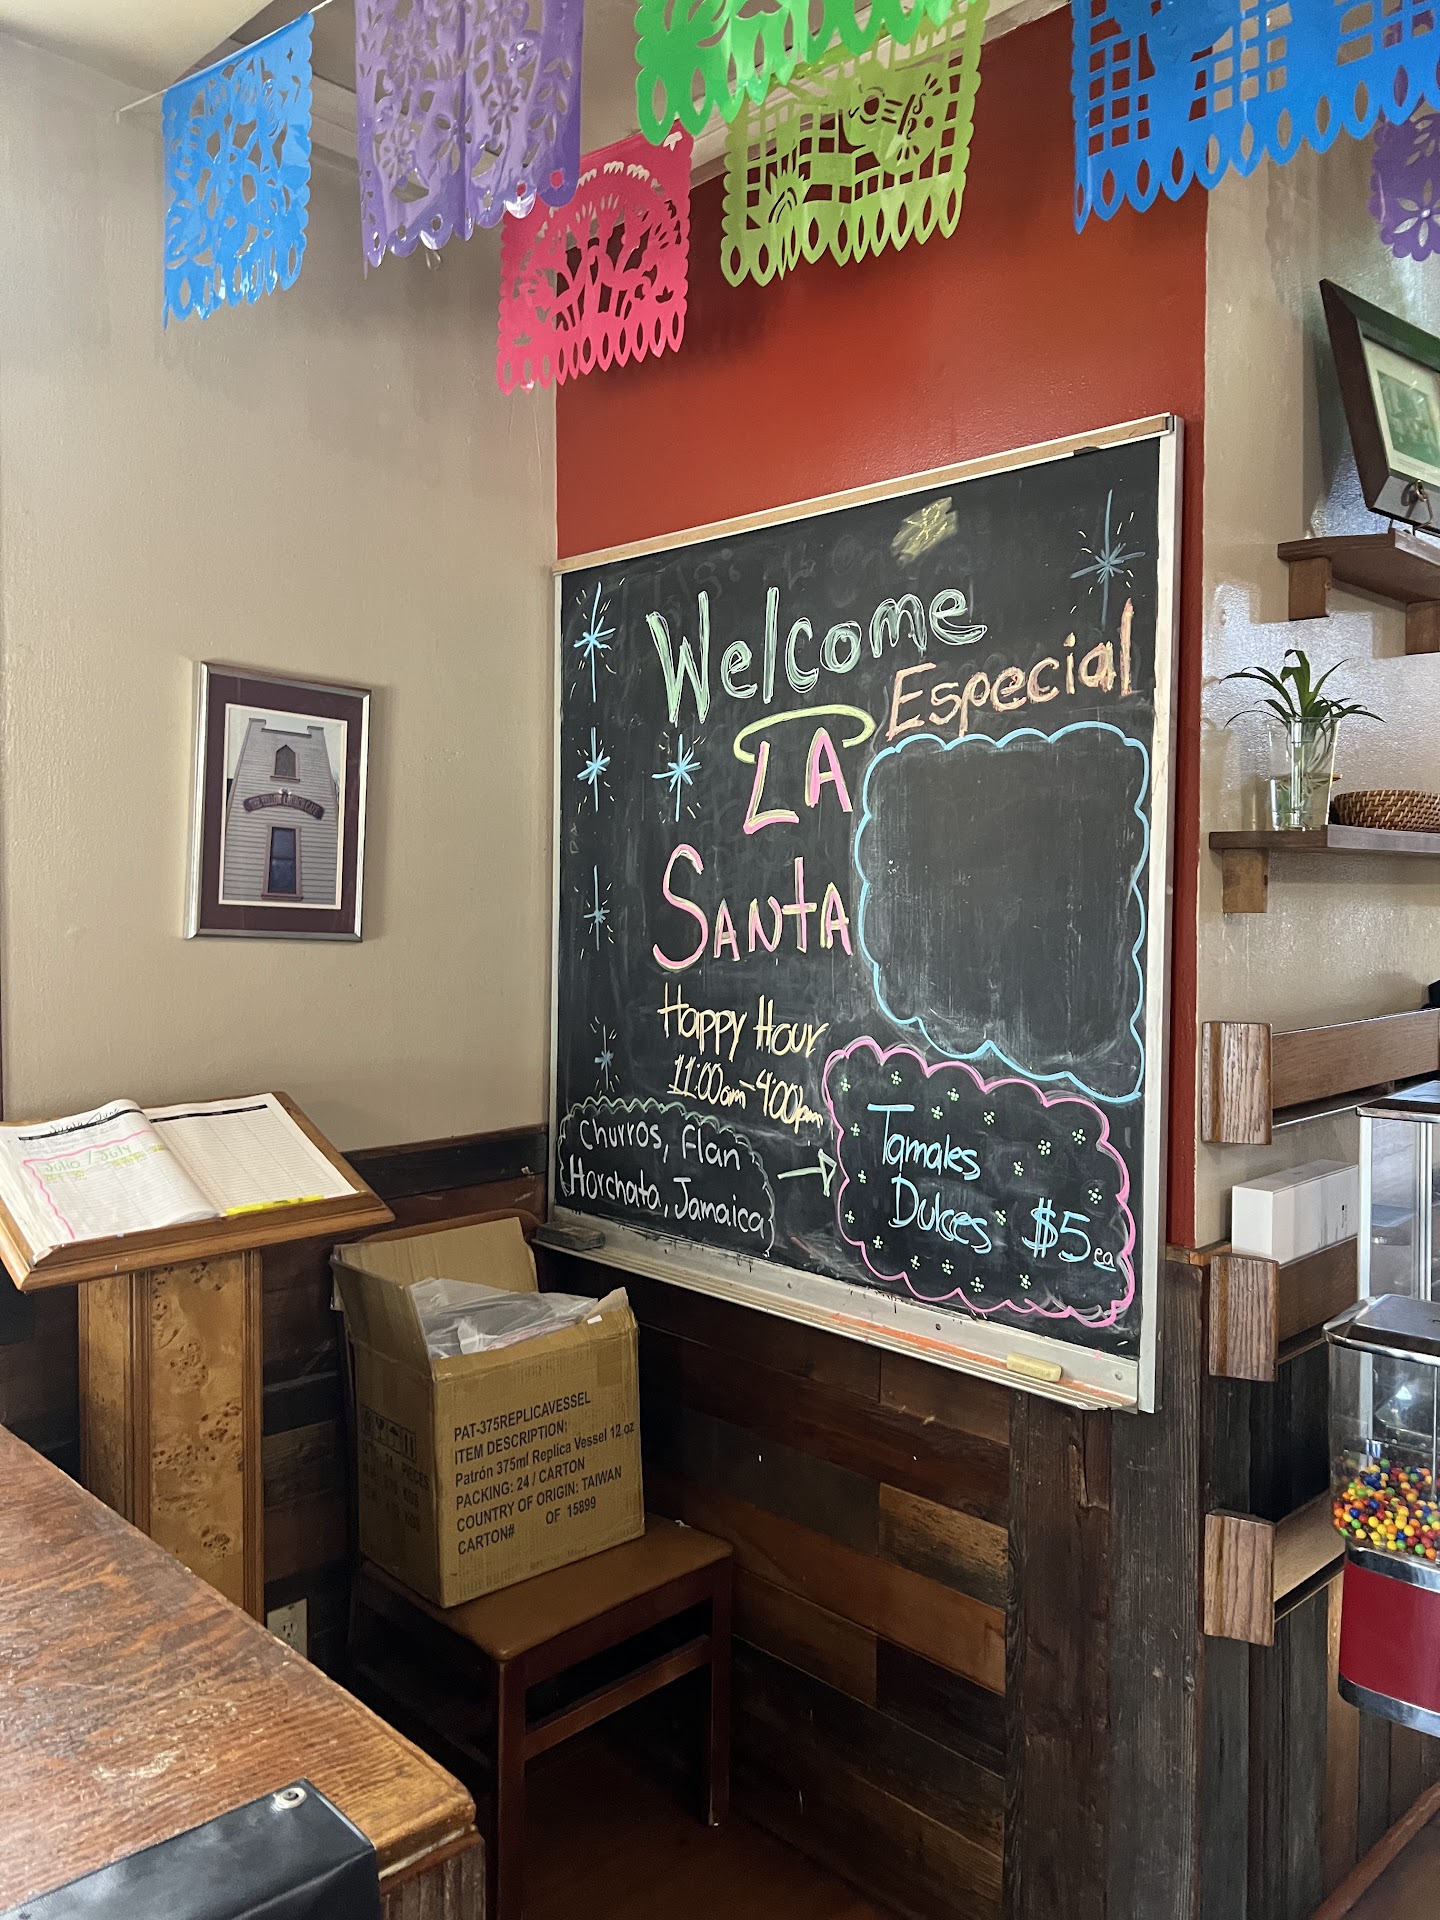 Welcome
Especial
LA
SANTA
Happy Hour
11:00am-4:00pm
Churros, Flan
Horchata, Jamaica
Tamales
Dulces $5 ea
Julio / July
PAT-375REPLICAVESSEL
ITEM DESCRIPTION:
Patrón 375ml Replica Vessel 12 oz
PACKING: 24 / CARTON
COUNTRY OF ORIGIN: TAIWAN
CARTON# OF 15899